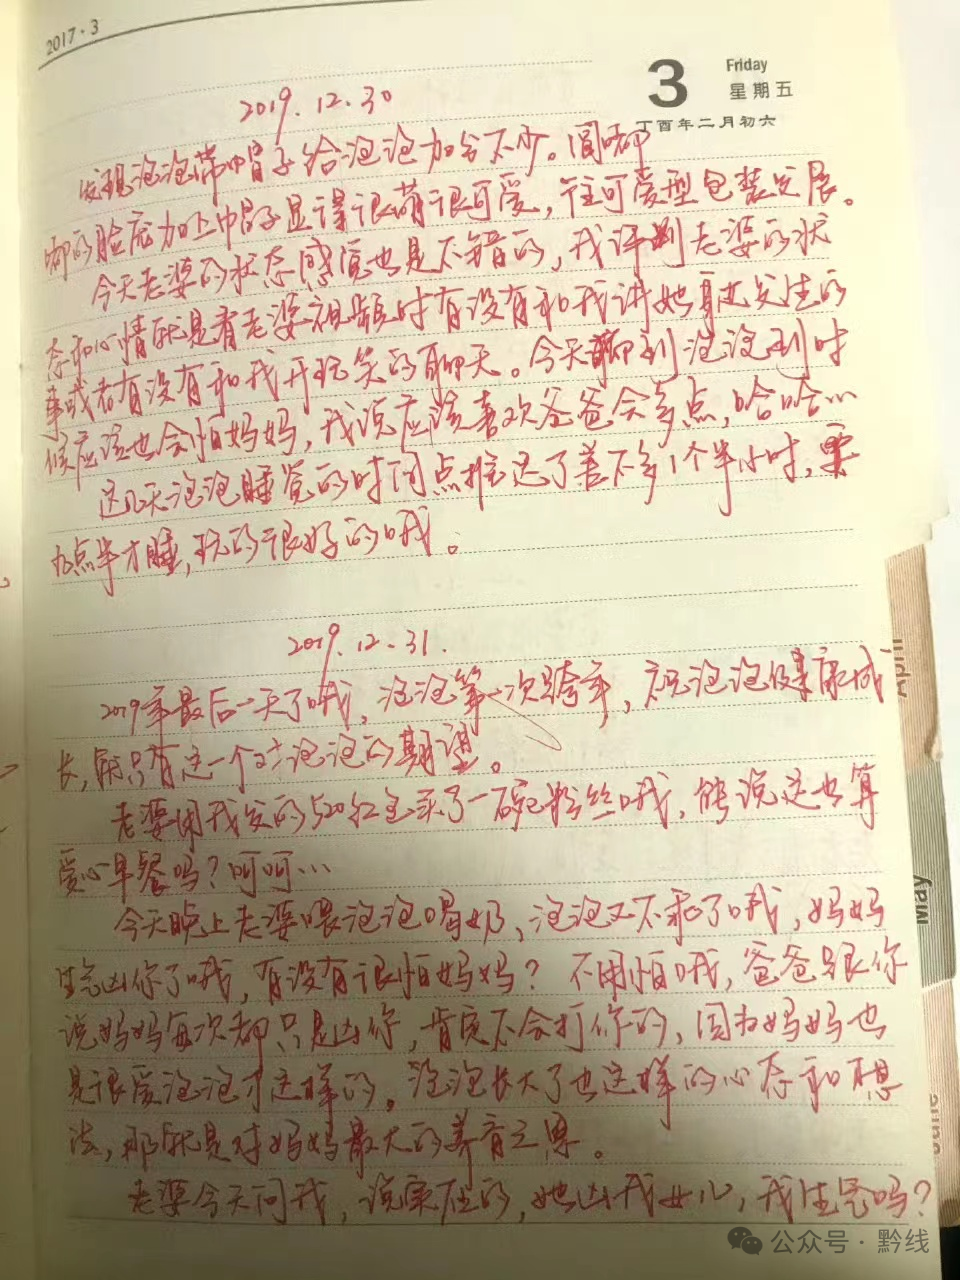 2017·3
3
Friday
星期五
丁酉年二月初六
2019.12.30
发现泡泡带帽子给泡泡加分不少。圆嘟
嘟的脸庞加上帽子显得很萌很可爱,往可爱型包装发展。
今天老婆的状态感觉也是不错的,我评判老婆的状
态和心情就是看老婆视频时有没有和我讲她身边发生的
事或者有没有和我开玩笑的聊天。今天聊到泡泡到时
候应该也会怕妈妈,我说应该喜欢爸爸会多点,哈哈…
这几天泡泡睡觉的时间点推迟了差不多1个半小时,要
九点半才睡,玩的很好的哦。
2019.12.31.
2019年最后一天了哦,泡泡第一次跨年,祝泡泡健康成
长,只有这一个对泡泡的期望。
老婆用我发的520红包买了一碗粉丝哦,能说这也算
爱心早餐吗?呵呵…
今天晚上老婆喂泡泡喝奶,泡泡又不乖了哦,妈妈
生气凶你了哦,有没有很怕妈妈?不用怕哦,爸爸跟你
说妈妈每次都只是凶你,肯定不会打你的,因为妈妈也
是很爱泡泡才这样的。泡泡长大了也这样的心态和想
法,那就是对妈妈最大的养育之恩。
老婆今天问我,说实在的,她凶我女儿,我生气吗?
April
May
June
公众号·黔线